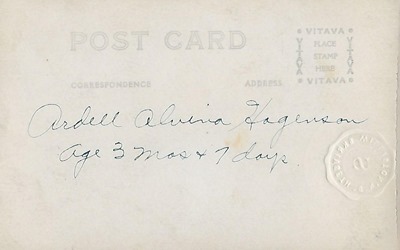 POST CARD
VITAVA
PLACE
STAMP
HERE
VITAVA
VITAVA
VITAVA
CORRESPONDENCE
ADDRESS
Ardell Alvina Hagenson
Age 3 Mos + 7 days.